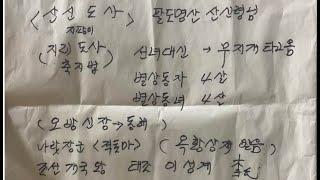 〈산신도사〉 팔도명산 산신령님
지팡이
(지리도사 선녀대신 → 무지개 타고옴
축지법) 별상동자 4산
별상동녀 4산
(오방신장 → 동해)
나랏장군 〈적토마〉 (옥황상제 있음)
조선 개국왕 태조 이성계